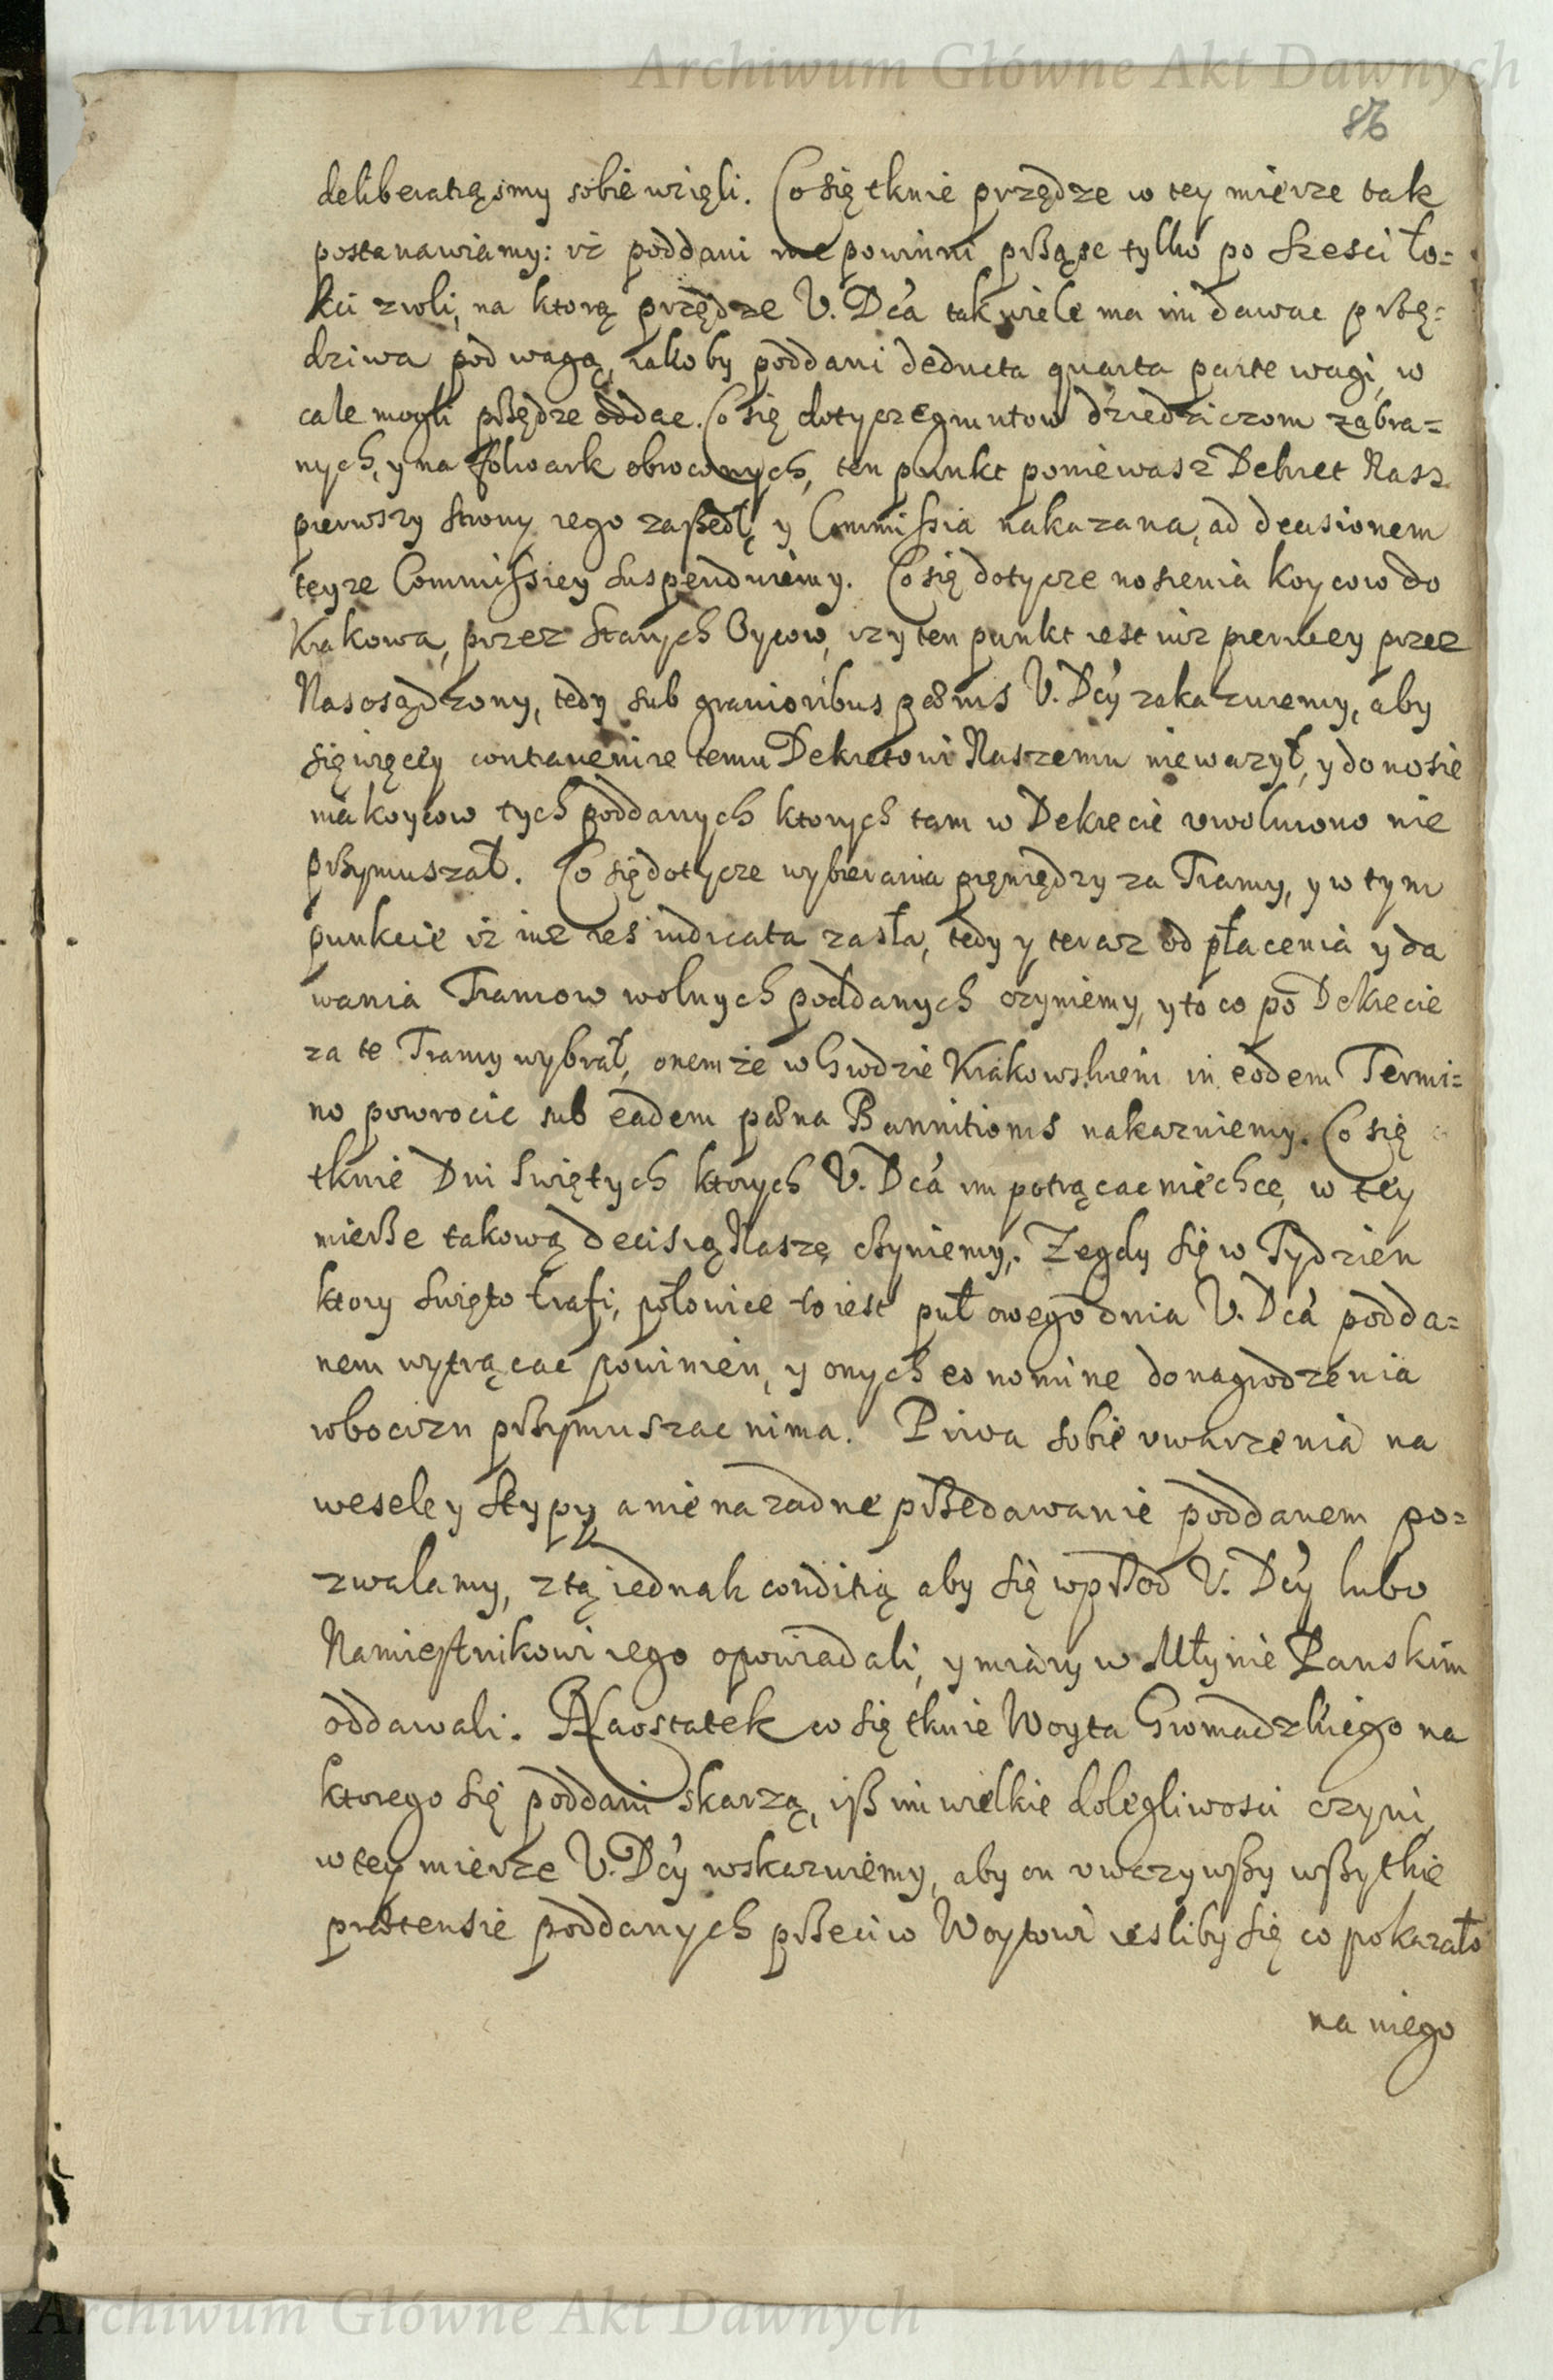 Archiwum Główne Akt Dawnych
86
deliberatią smy sobie wzięli. Co się tknie przędze w tey mierze tak
postanawiamy: iż poddani nie powinni prząśc tylko po sześci ło=
kci z roli, na ktorą przędze U. Dcá tak wiele ma im dawac przę=
dziwa pod wagą, iakoby poddani deducta quarta parte wagi, w
cale mogli przędze oddac. Co się dotycze gruntow dziedziczom zabra=
nych, y na folwark obroconych, ten punkt poniewasz Dekret Nasz
pierwszy strony iego zaszedł, y Commissia nakazana, ad decisionem
teyze Commissiey suspenduiemy. Co się dotycze nosienia koycow do
Krakowa, przez starych Oycow, iz y ten punkt iest iuz pierwey przez
Nas osądzony, tedy sub gravioribus pœnis U. Dcý zakazuiemy, aby
się więcey contravenire temu Dekretowi Naszemu nie wazył, y do nosie
nia koycow tych poddanych ktorych tam w Dekrecie uwolniono nie
przymuszał. Co się dotycze wybierania pięniędzy za Tramy, y w tym
punkcie iż iuz res iudicata zasła, tedy y teraz od płacenia y da
wania Tramow wolnych poddanych czyniemy, y to co po Dekrecie
za te Tramy wybrał, onemże w Grodzie Krakowskiem in eodem Termi=
no powrocic sub eadem pœna Bannitionis nakazuiemy. Co się
tknie Dni Swiętych ktorych U. Dcá im potrącac niechce, w tey
mierze takową decisią Naszę czyniemy. Ze gdy się w Tydzien
ktory swięto trafi, połowice to iest puł owego dnia U. Dcá podda=
nem wytrącac powinien, y onych eo nomine do nagrodzenia
robocizn przymuszac nima. Piwa sobie uwarzenia na
wesele y stypy a nie na zadne przedawanie poddanem po=
zwalamy, z tą iednak conditią aby się wprzod U. Dcý lubo
Namiestnikowi iego opowiadali, y miary w Młynie Panskim
oddawali. Naostatek co się tknie Woyta Gromadzkiego na
ktorego się poddani skarzą, isz im wielkie dolegliwosci czyni,
w tey mierze U. Dcý wskazuiemy, aby on uwazywszy wszytkie
prætensie poddanych przeciw Woytowi iesliby się co pokazało
na niego
Archiwum Główne Akt Dawnych